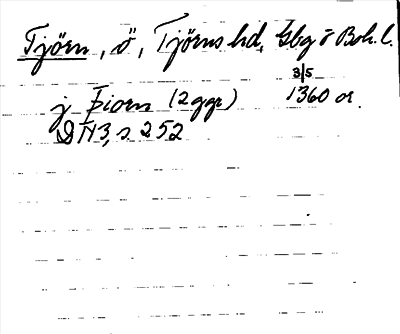 Tjörn, ö, Tjörns hd, Gbg o Boh. l.
3/5
j Þiorn (2 ggr) 1360 or.
DN 3, s. 252